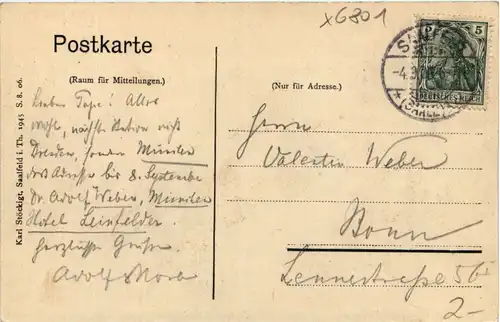 x6801
Postkarte
(Raum für Mitteilungen.)
(Nur für Adresse.)
5
DEUTSCHES REICH
-4.9
(SAALE)
Karl Stöckigt, Saalfeld i. Th. 1945 S. 8. 06.
Lieber Papa! Also
nicht, nächste Station nicht
Dresden, sondern München
Adresse bis 8. September
Dr. Adolf Weber, München
Hotel Leinfelder.
Herzliche Grüße
Adolf
Herrn
Valentin Weber
Bonn
Lennéstraße 56
2-